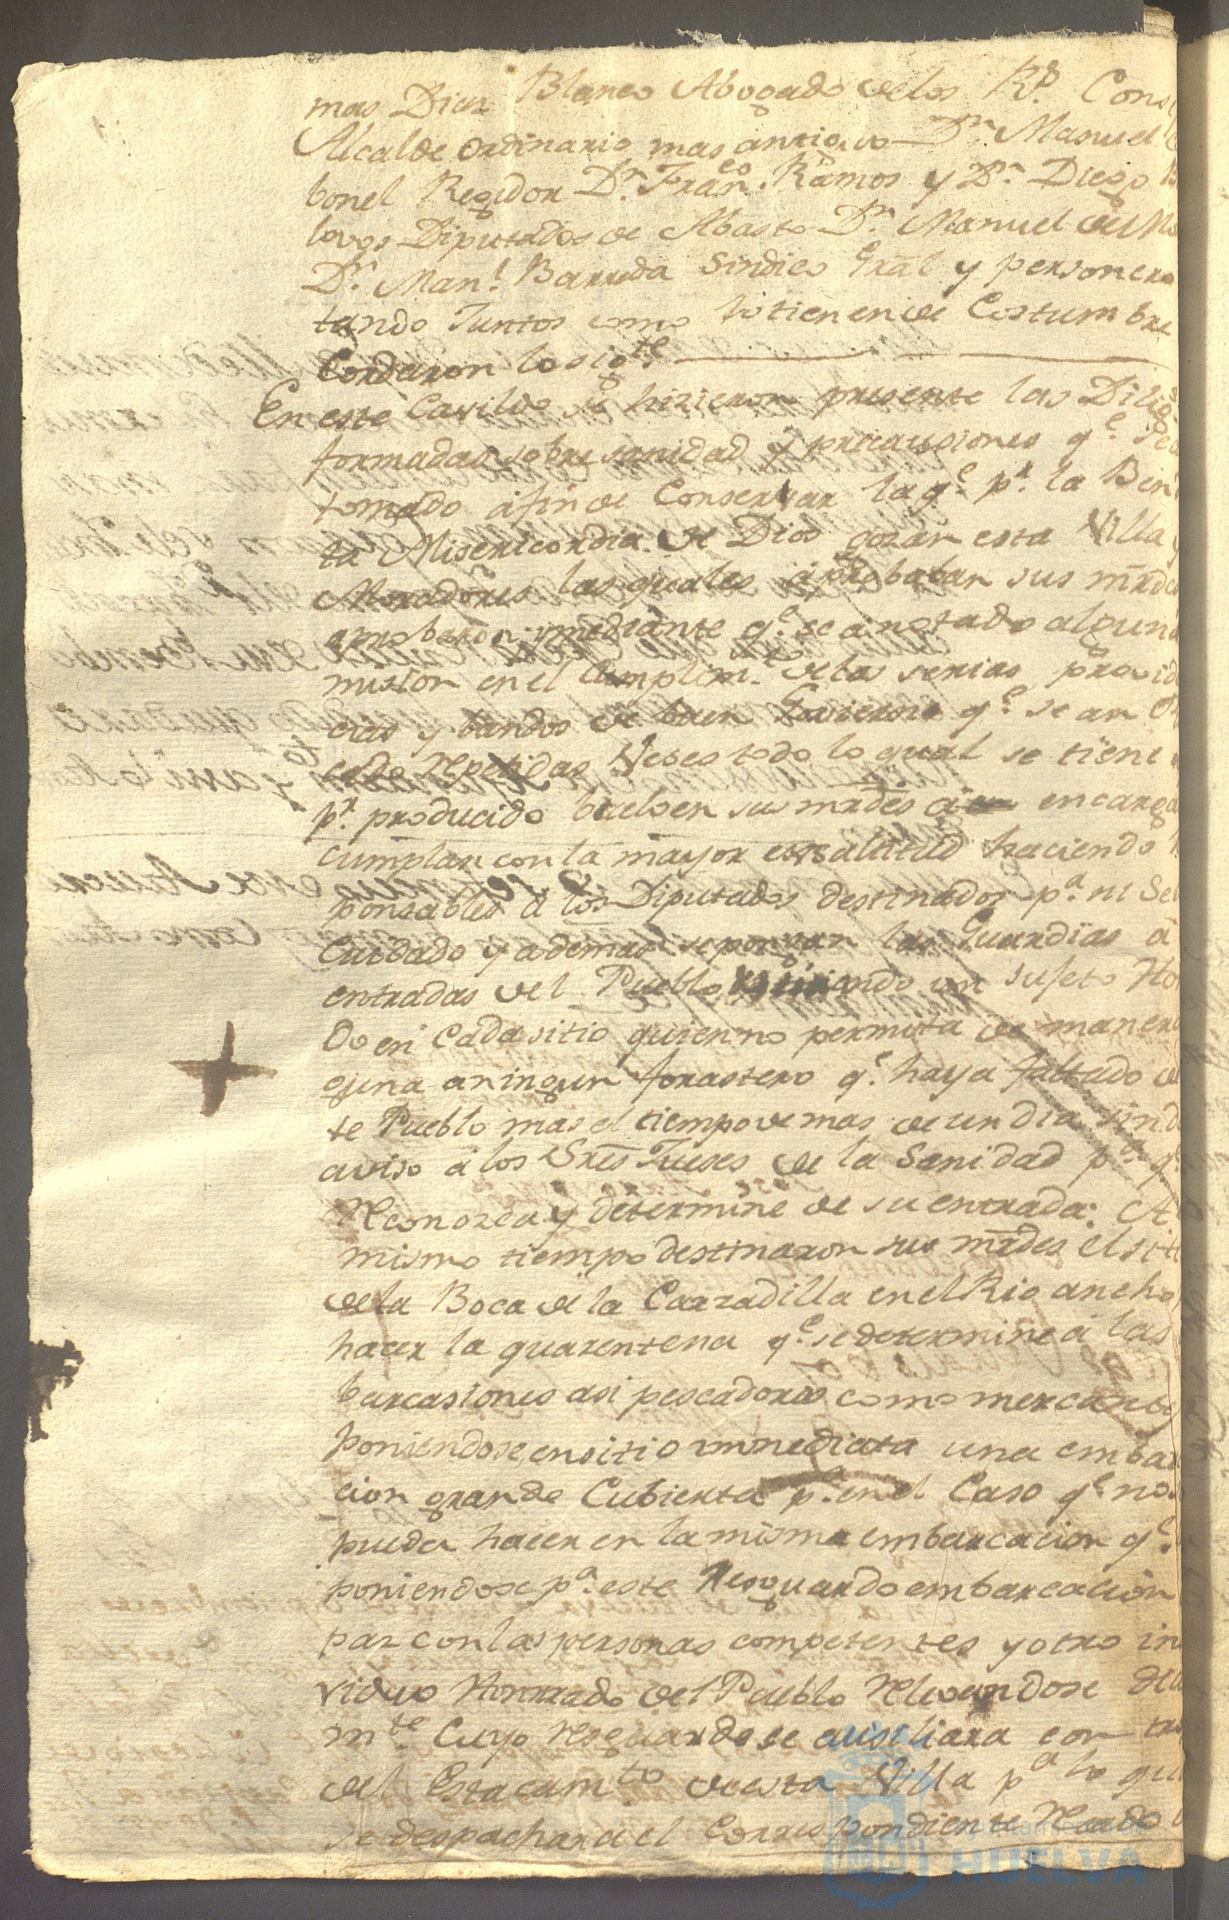 mas Diaz Blanco Abogado de los Rs. Cons
Alcalde ordinario mas antiguo Dn. Manuel
bonel Regidor Dn. Franco. Ramos y Dn. Diego
lovos Diputados de Abasto Dn. Manuel de Mo
Dn. Manl. Barreda Sindico Gral y personero
tando Juntos como lo tienen de Costumbre
Cordaron lo sigte
En este Cavildo se hizieron presente las Dilig
formadas sobre sanidad y precausiones qe. se
tomado á fin de Conservar la qe. pr. la Ben
ta Misericordia de Dios gozan esta Villa y
Moradores las quales aprobaban sus mrdes
aprobaron: mediante qe. se a notado alguna
mision en el Cumplimto. de las serias provid
cias y bandos de buen Govierno qe. se an
repetidas Veses todo lo qual se tiene
pr. producido buelven sus mrdes a encarga
cumplan con la mayor exsatitud haciendo
ponsables a los Diputados destinados pa.
Cuidado y ademas se pongan las Guardias á
entradas del Pueblo un sujeto Ho
do en Cada sitio quien no permita de maner
guna a ningun forastero qe. haya faltado de
te Pueblo mas el tiempo de mas de un dia sin d
aviso á los Sres Jueses de la Sanidad pa. qe.
Reconozca y determine de su entrada: A
mismo tiempo destinaron sus mrdes el siti
de la Boca de la Cazzadilla en el Rio ancho
hacer la quarentena qe. se determine á las
barcasiones asi pescadoras como mercante
poniendose en sitio immediata una embar
cion grande Cubierta pa. en el Caso qe. no
pueda hacer en la misma embarcacion qe.
poniendose pa. este Resguardo embarcacion
par con las personas competentes y otro in
viduo Honrrado del Pueblo Relevandose dia
mte. Cuyo resguardo se ausiliara con
del Estacamto de esta Villa pa lo qu
se despachara el Correspondiente Recado
HUELVA